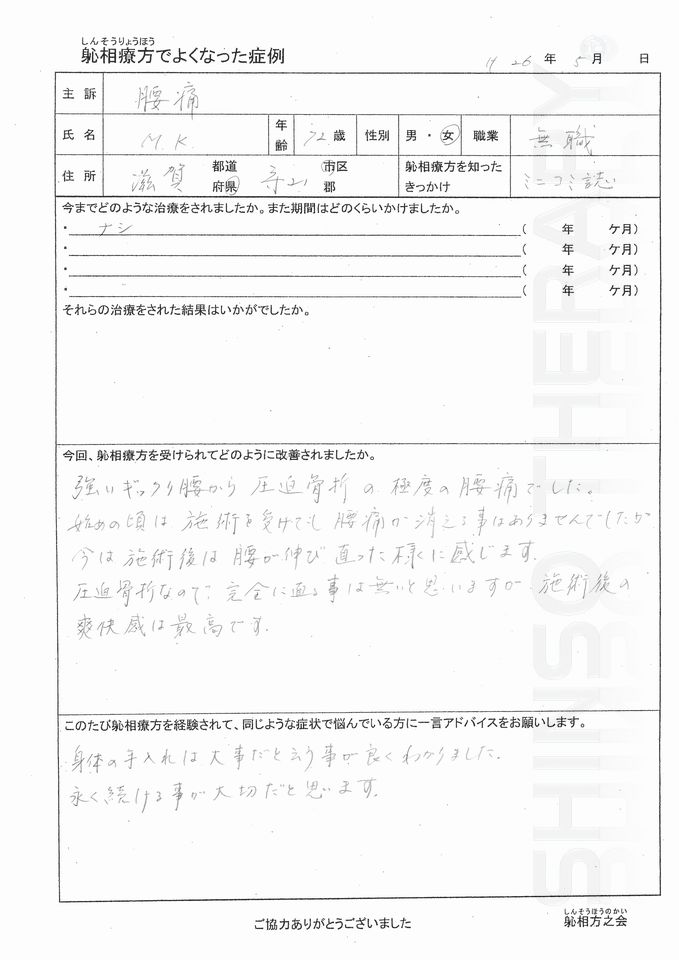 しんそうりょうほう
躰相療方でよくなった症例
H 26 年 5 月 日
主訴 腰痛
氏名 M.K. 年齢 72 歳 性別 男・女 職業 無職
住所 滋賀 都道府県 守山 市区郡 躰相療方を知ったきっかけ ミニコミ誌
今までどのような治療をされましたか。また期間はどのくらいかけましたか。
・ナシ ( 年 ケ月)
・ ( 年 ケ月)
・ ( 年 ケ月)
・ ( 年 ケ月)
それらの治療をされた結果はいかがでしたか。
今回、躰相療方を受けられてどのように改善されましたか。
強いギックリ腰から圧迫骨折の極度の腰痛でした。
始めの頃は施術を受けても腰痛が消える事はありませんでしたが
今は施術後は腰が伸び直った様に感じます。
圧迫骨折なので完全に直る事は無いと思いますが、施術後の
爽快感は最高です。
このたび躰相療方を経験されて、同じような症状で悩んでいる方に一言アドバイスをお願いします。
身体の手入れは大事だと云う事が良くわかりました。
永く続ける事が大切だと思います。
ご協力ありがとうございました
しんそうほうのかい
躰相方之会
SHINSO THERAPY